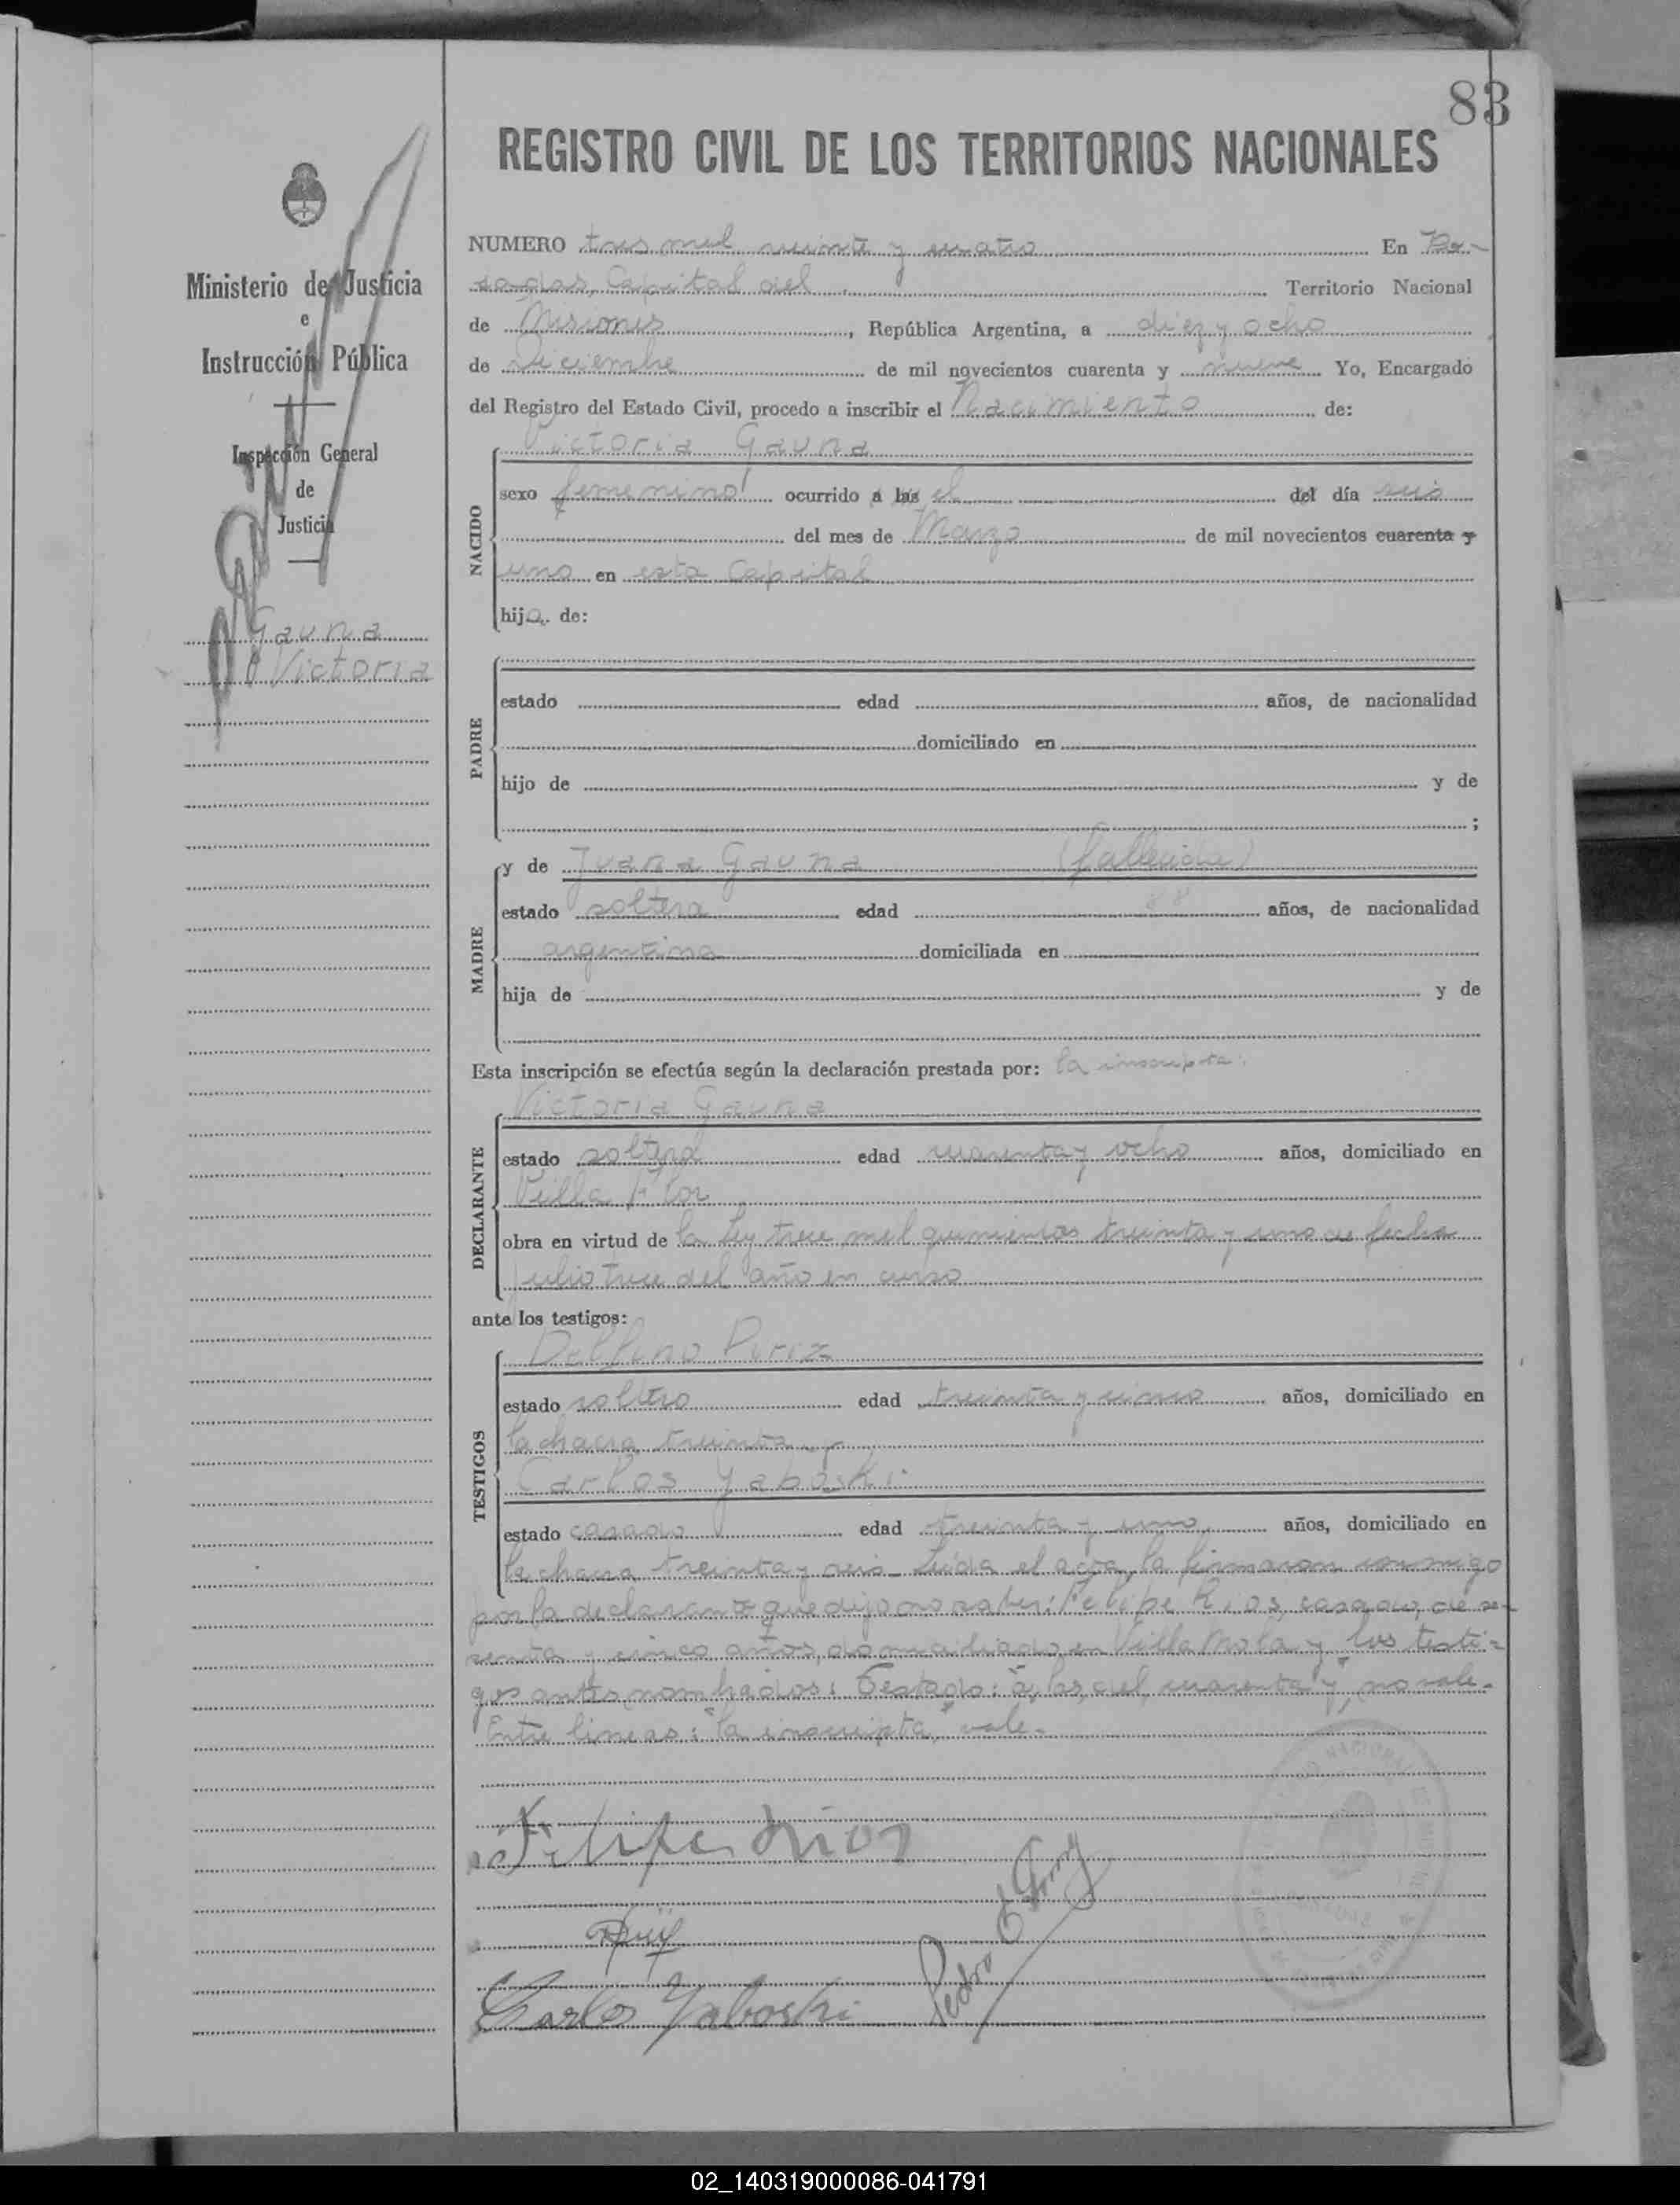 83
REGISTRO CIVIL DE LOS TERRITORIOS NACIONALES
Ministerio de Justicia
e
Instrucción Pública
Inspección General
de
Justicia
Gauna
Victoria
NUMERO tres mil veinte y cuatro En Po-
sadas, Capital del Territorio Nacional
de Misiones, República Argentina, a diez y ocho
de Diciembre de mil novecientos cuarenta y nueve Yo, Encargado
del Registro del Estado Civil, procedo a inscribir el Nacimiento de:
NACIDO
Victoria Gauna
sexo femenino ocurrido a las el del día seis
del mes de Marzo de mil novecientos cuarenta y
uno en esta Capital
hija de:
PADRE
estado edad años, de nacionalidad
domiciliado en
hijo de y de
;
MADRE
y de Juana Gauna (fallecida)
estado soltera edad años, de nacionalidad
argentina domiciliada en
hija de y de
Esta inscripción se efectúa según la declaración prestada por: la inscripta:
DECLARANTE
Victoria Gauna
estado soltera edad cuarenta y ocho años, domiciliado en
Villa Flor
obra en virtud de la Ley trece mil quinientos treinta y uno de fecha
julio trece del año en curso
ante los testigos:
TESTIGOS
Delfino Piriz
estado soltero edad treinta y cinco años, domiciliado en
la chacra treinta y
Carlos Yaboski
estado casado edad treinta y uno años, domiciliado en
la chacra treinta y seis. Leída el acta, la firmaron conmigo
por la declarante que dijo no saber: Felipe Rios, casado, de se-
senta y cinco años, domiciliado en Villa Mola y los testi-
gos antes nombrados: Testado: a, las, del, cuarenta y, no vale.
Entre lineas: "la inscripta" vale.
Felipe Rios
Carlos Yaboski
Pedro
02_140319000086-041791